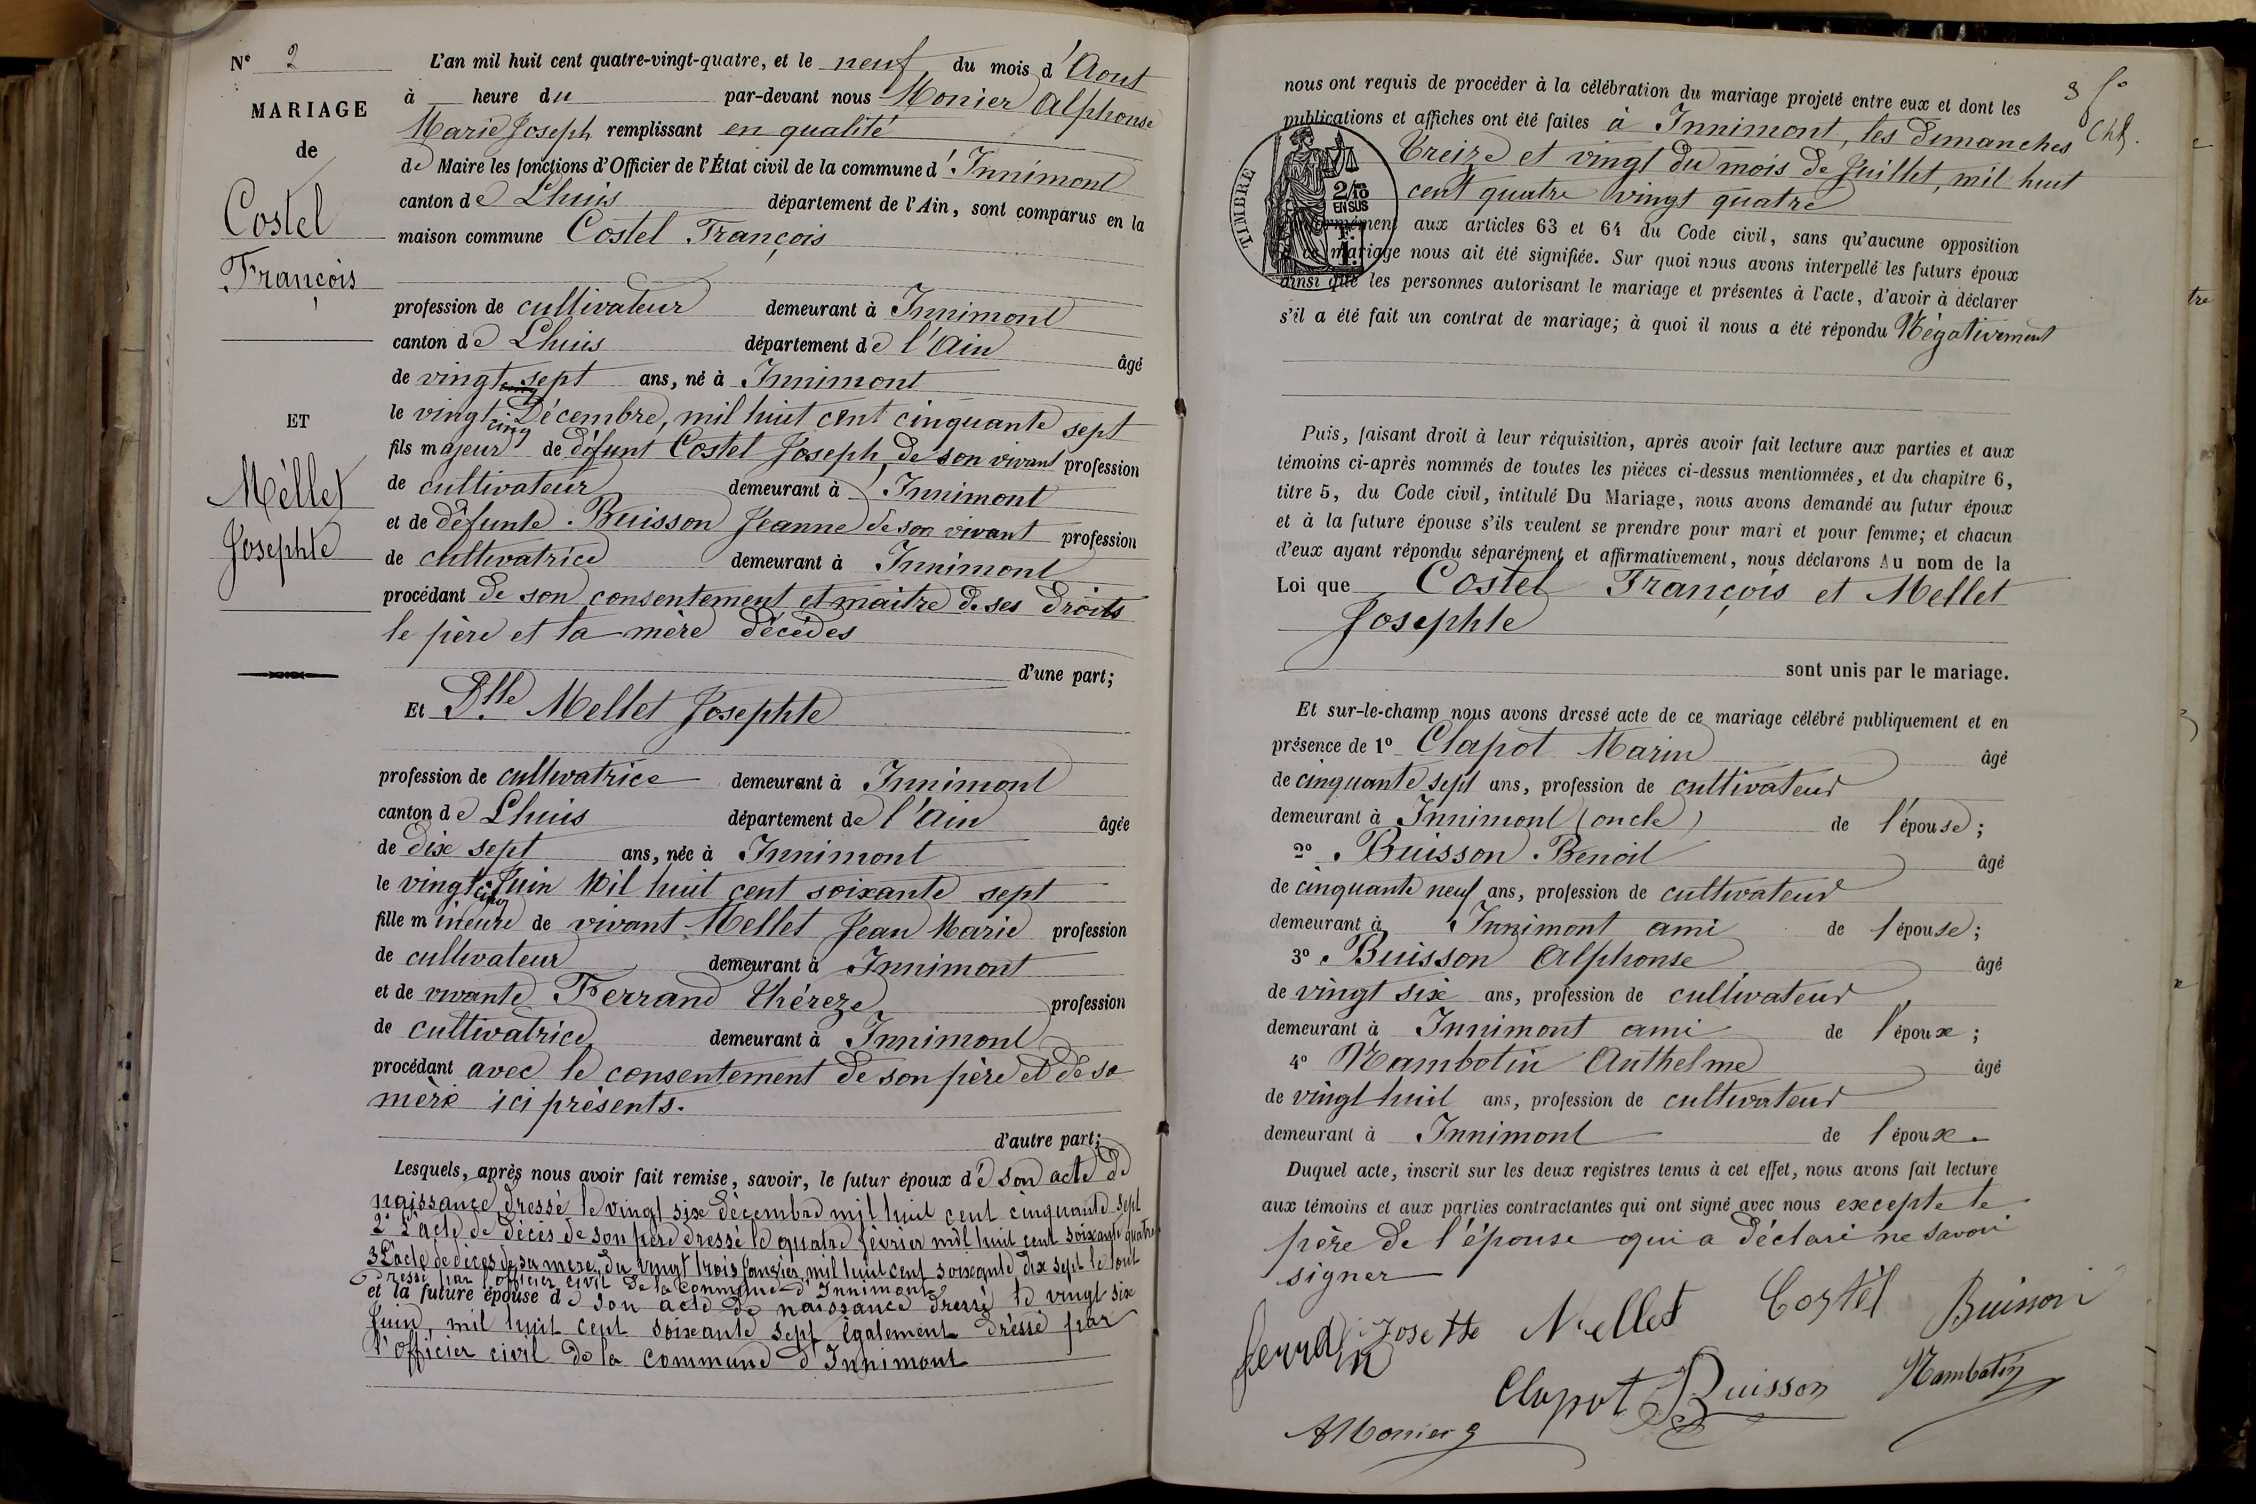 N° 2
MARIAGE
de
Costel
François
ET
Mèllet
Josephte
L'an mil huit cent quatre-vingt-quatre, et le neuf du mois d'Aout
à heure du par-devant nous Monier Alphonse
Marie Joseph remplissant en qualité
de Maire les fonctions d'Officier de l'État civil de la commune d'Innimont
canton de Lhuis département de l'Ain, sont comparus en la
maison commune Costel François
profession de cultivateur demeurant à Innimont
canton de Lhuis département de l'Ain âgé
de vingt sept ans, né à Innimont
le vingt cinq Décembre, mil huit cent cinquante sept
fils majeur de défunt Costel Joseph, de son vivant profession
de cultivateur demeurant à Innimont
et de défunte Buisson Jeanne de son vivant profession
de cultivatrice demeurant à Innimont
procédant de son consentement et maitre de ses droits
le père et la mère décédes
d'une part;
Et Dlle Mellet Josephte
profession de cultivatrice demeurant à Innimont
canton de Lhuis département de l'Ain âgée
de dix sept ans, née à Innimont
le vingt cinq Juin Mil huit cent soixante sept
fille mineure de vivant Mellet Jean Marie profession
de cultivateur demeurant à Innimont
et de vivante Ferrand Thérèze profession
de cultivatrice demeurant à Innimont
procédant avec le consentement de son père et de sa
mère ici présents.
d'autre part;
Lesquels, après nous avoir fait remise, savoir, le futur époux dé son acte de
naissance dressé le vingt six décembre mil huit cent cinquante sept
2° L'acte de décès de son père dressé le quatre février mil huit cent soixante quatre
3 L'acte de décès de sa mère du vingt trois Janvier mil huit cent soixante dix sept le tout
dressé par l'officier civil de la Commune d'Innimont
et la future épouse de son acte de naissance dressé le vingt six
Juin, mil huit cent soixante sept également dressé par
l'officier civil de la commune d'Innimont
3 f°
nous ont requis de procéder à la célébration du mariage projeté entre eux et dont les
publications et affiches ont été faites à Innimont, les dimanches
Treize et vingt du mois de Juillet, mil huit
cent quatre vingt quatre
TIMBRE
2/10
EN SUS
F.
1.
aux articles 63 et 64 du Code civil, sans qu'aucune opposition
à ce mariage nous ait été signifiée. Sur quoi nous avons interpellé les futurs époux
ainsi que les personnes autorisant le mariage et présentes à l'acte, d'avoir à déclarer
s'il a été fait un contrat de mariage; à quoi il nous a été répondu Négativement
Puis, faisant droit à leur réquisition, après avoir fait lecture aux parties et aux
témoins ci-après nommés de toutes les pièces ci-dessus mentionnées, et du chapitre 6,
titre 5, du Code civil, intitulé Du Mariage, nous avons demandé au futur époux
et à la future épouse s'ils veulent se prendre pour mari et pour femme; et chacun
d'eux ayant répondu séparément et affirmativement, nous déclarons Au nom de la
Loi que Costel François et Mellet
Josephte
sont unis par le mariage.
Et sur-le-champ nous avons dressé acte de ce mariage célébré publiquement et en
présence de 1° Clapot Marin âgé
de cinquante sept ans, profession de cultivateur
demeurant à Innimont (oncle) de l'épouse;
2° Buisson Benoit âgé
de cinquante neuf ans, profession de cultivateur
demeurant à Innimont ami de l'épouse;
3° Buisson Alphonse âgé
de vingt six ans, profession de cultivateur
demeurant à Innimont ami de l'époux;
4° Nambotin Anthelme âgé
de vingt huit ans, profession de cultivateur
demeurant à Innimont de l'époux.
Duquel acte, inscrit sur les deux registres tenus à cet effet, nous avons fait lecture
aux témoins et aux parties contractantes qui ont signé avec nous excepte le
père de l'épouse qui a déclaré ne savoir
signer
Josette Mellet Costel Buisson
Clapot Buisson Nambotin
AMonier